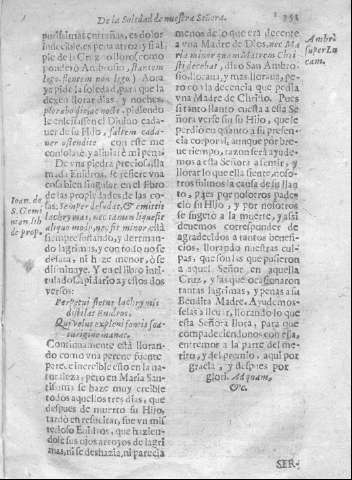 De la Soledad de nuestra Señora.
purissimas entrañas, es dolor
indecible, es pena atroz y si al
pie de la Cruz no lloró (como
pondero Ambrosio, stantem
lego, flentem non lego) Aora
ya pide la soledad, para que la
dexen llorar dias, y noches,
plorabo die, ac nocte, pidiendo
le enseñasen el Divino cada-
uer de su Hijo, saltem cada-
uer ostendite con este me
consolaré, y aliuiaré mi pena.
De vna piedra preciosa, lla
mada Enidros, se refiere vna
cosa bien singular en el libro
de las propiedades de las co-
sas. Semper desudat, & emittit
lachrymas, nec tamen liquescit
aliquo modo, nec fit minor está
siempre sudando, y derraman-
do lagrimas, y con todo no se
desata, ni haze menor, ó se
disminuye. Y en el libro inti-
tulado Lapidario ay estos dos
versos:
Perpetui fletus lachrymis
distilat Enidros,
Qui velut ex pleni fontis sca-
turigine manat.
Continuamente está lloran-
do como vna perene fuente
parece increible esto en la na-
turaleza; pero en Maria San-
tissima se haze muy creible
todos aquellos tres dias, que
despues de muerto su Hijo,
tardó en resucitar, fue vn mis-
terioso Enidros, que hazien-
dose sus ojos arroyos de lagri-
mas, ni se deshazia, ni parecia
Ioan. de
S. Gemi
nian. lib.
de prop.
351
menos de lo que era decente
a vna Madre de Dios, nec Ma
ria minor quam Matrem Chri
sti decebat, dixo San Ambro-
sio, llorava, y mas llorava, pe-
ro con la decencia que pedia
vna Madre de Christo. Pues
si tanto llanto cuesta a esta Se
ñora verse sin su Hijo, que se
perdió en quanto a su presen-
cia corporal, aunque por bre-
ue tiempo, razon será ayude-
mos a esta Señora a sentir, y
llorar lo que ella siente, noso-
tros fuimos la causa de su llan
to, pues por nosotros pade-
ció su Hijo, y por nosotros
se sugeto a la muerte, y assi
deuemos corresponder de
agradecidos a tantos benefi-
cios, llorando nuestras cul-
pas, que son las que pusieron
a aquel Señor en aquella
Cruz, y las que ocasionaron
tantas lagrimas, y penas a su
Bendita Madre. Ayudemos-
selas a lleuar, llorando lo que
esta Señora llora, para que
compadeciendonos con ella,
entremos a la parte del me-
rito, y del premio, aqui por
gracia, y despues por
gloria. Ad quam,
&c.
Ambr.
super Lu
cam.
SER-